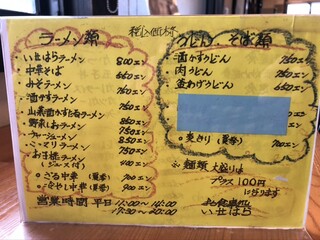 ラーメン類
税込価格
いせはらラーメン 800エン
中華そば 660エン
みそラーメン 760エン
油かすラーメン 760エン
山菜油かす若布ラーメン
野菜しおラーメン 860エン
750エン
850エン
750エン
お子様ラーメン 400エン
(ジュース付)
ざる中華(夏季) 700エン
冷やし中華(夏季) 900エン
営業時間 平日 11:00~14:00
17:30~20:00
うどん そば類
油かすうどん 760エン
肉うどん 760エン
釜あげうどん 660エン
(夏季) 750エン
※ 麺類 大盛りは
プラス100円
になります
いせはら